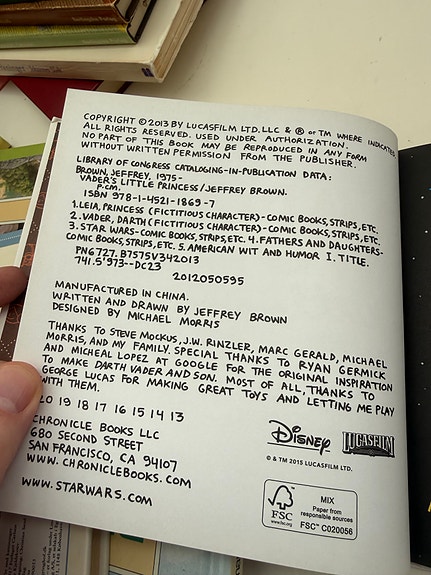 COPYRIGHT © 2013 BY LUCASFILM LTD. LLC & ® or TM WHERE INDICATED
ALL RIGHTS RESERVED. USED UNDER AUTHORIZATION.
NO PART OF THIS BOOK MAY BE REPRODUCED IN ANY FORM
WITHOUT WRITTEN PERMISSION FROM THE PUBLISHER.
LIBRARY OF CONGRESS CATALOGING-IN-PUBLICATION DATA:
BROWN, JEFFREY, 1975-
VADER'S LITTLE PRINCESS/JEFFREY BROWN.
P.CM.
ISBN 978-1-4521-1869-7
1. LEIA, PRINCESS (FICTITIOUS CHARACTER)-COMIC BOOKS, STRIPS, ETC.
2. VADER, DARTH (FICTITIOUS CHARACTER)-COMIC BOOKS, STRIPS, ETC.
3. STAR WARS-COMIC BOOKS, STRIPS, ETC. 4. FATHERS AND DAUGHTERS-
COMIC BOOKS, STRIPS, ETC. 5. AMERICAN WIT AND HUMOR I. TITLE.
PN6727.B7575V342013
741.5'973--DC23
2012050595
MANUFACTURED IN CHINA.
WRITTEN AND DRAWN BY JEFFREY BROWN
DESIGNED BY MICHAEL MORRIS
THANKS TO STEVE MOCKUS, J.W. RINZLER, MARC GERALD, MICHAEL
MORRIS, AND MY FAMILY. SPECIAL THANKS TO RYAN GERMICK
AND MICHEAL LOPEZ AT GOOGLE FOR THE ORIGINAL INSPIRATION
TO MAKE DARTH VADER AND SON. MOST OF ALL, THANKS TO
GEORGE LUCAS FOR MAKING GREAT TOYS AND LETTING ME PLAY
WITH THEM.
20 19 18 17 16 15 14 13
CHRONICLE BOOKS LLC
680 SECOND STREET
SAN FRANCISCO, CA 94107
WWW.CHRONICLEBOOKS.COM
WWW.STARWARS.COM
Disney
LUCASFILM
© & TM 2015 LUCASFILM LTD.
FSC
www.fsc.org
MIX
Paper from
responsible sources
FSC™ C020056